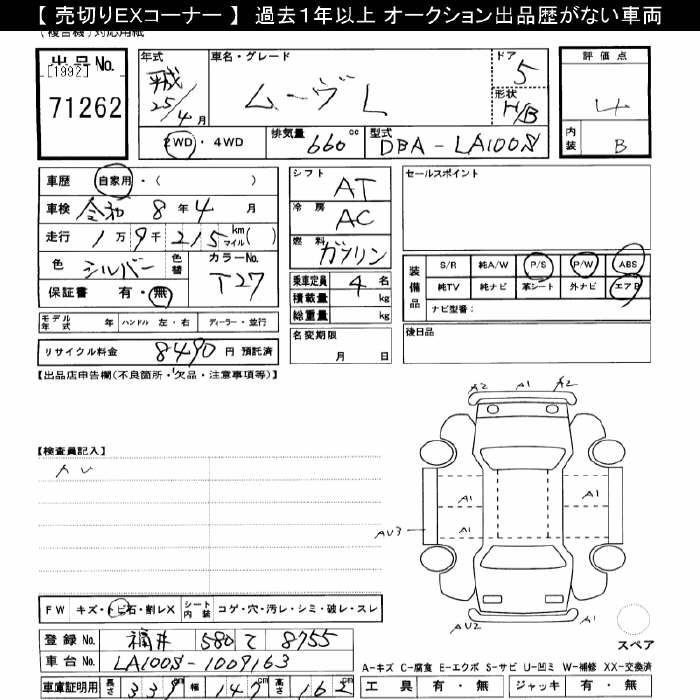 【 売切りEXコーナー 】 過去１年以上 オークション出品歴がない車両
(複合機)対応用紙
出品No.
[1992]
71262
年式
平成
25/4月
車名・グレード
ムーヴL
ドア
5
形状
H/B
評価点
4
内装
B
2WD・4WD
排気量 660cc
型式 DBA-LA100S
車歴 自家用・( )
車検 令和 8年 4月
走行 1万 9千 215 km マイル( )
色 シルバー 色替 カラーNo. T27
保証書 有・無
シフト AT
冷房 AC
燃料 ガソリン
乗車定員 4名
積載量 kg
総重量 kg
名変期限
月 日
セールスポイント
装備品
S/R 純A/W P/S P/W ABS
純TV 純ナビ 革シート 外ナビ エアB
ナビ型番：
後日品
モデル年式 年 ハンドル 左・右 ディーラー・並行
リサイクル料金 8490 円 預託済
【出品店申告欄(不良箇所・欠品・注意事項等)】
【検査員記入】
A2 A1 A2
A1 A1
A1 A1
AU3
AU2 A1
FW キズ・トビ石・割レX シート内装 コゲ・穴・汚レ・シミ・破レ・スレ
スペア
登録No. 福井 580 て 8755
車台No. LA100S-1009163
A-キズ C-腐食 E-エクボ S-サビ U-凹ミ W-補修 XX-交換済
車庫証明用 長さ 339cm 幅 147cm 高さ 162cm
工具 有・無 ジャッキ 有・無